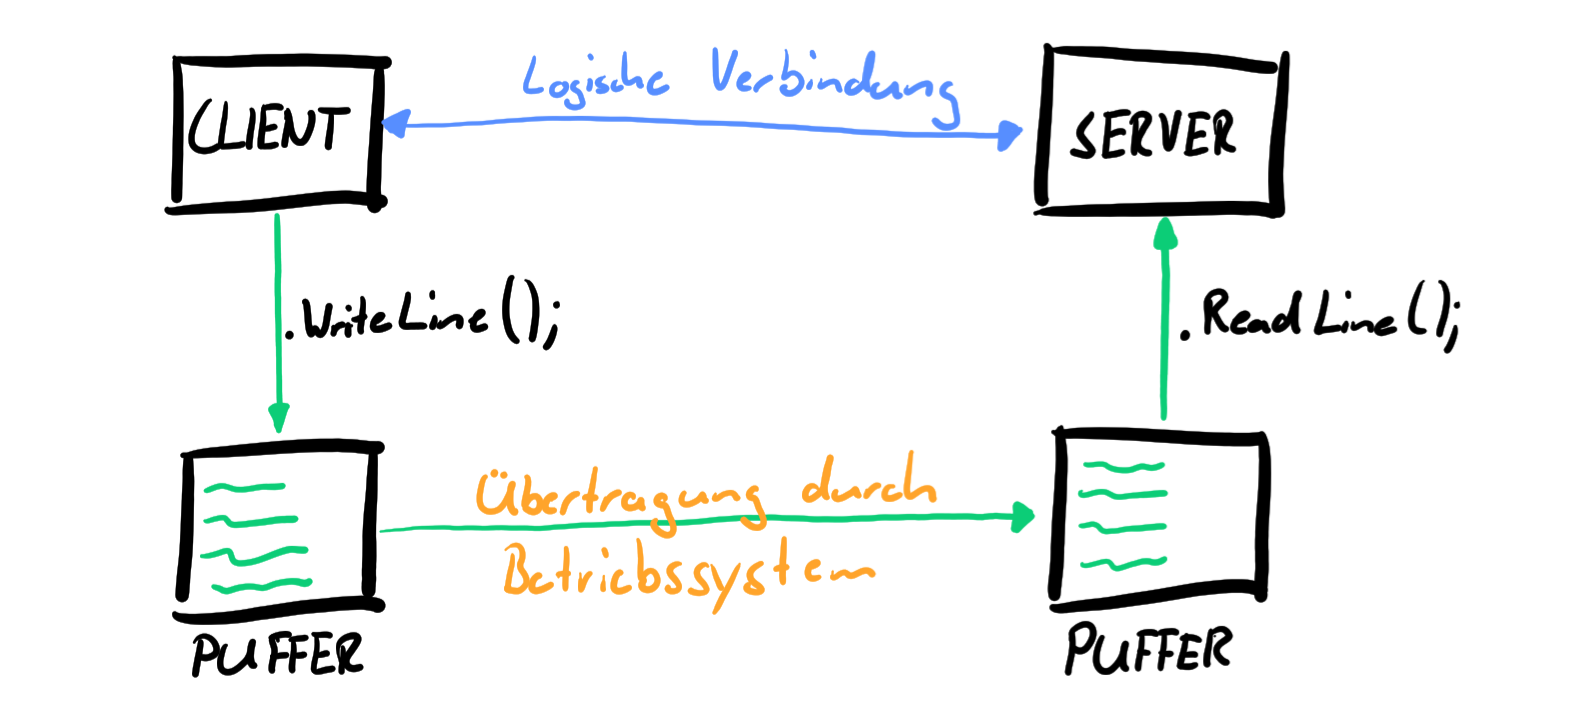 Logische Verbindung
CLIENT
SERVER
.WriteLine();
.ReadLine();
Übertragung durch
Betriebssystem
PUFFER
PUFFER